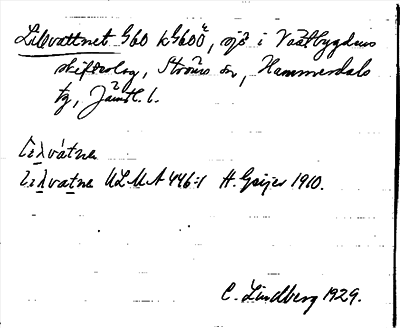 Lillvattnet G60 kG60ö, sjö i Vattbygdens
skifteslag, Ströms sn, Hammerdals
tg, Jämtl. l.
lilvátne
lilvatne ULMA 446:1 H. Geijer 1910.
C. Lindberg 1929.